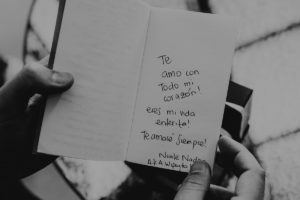 Te
amo con
Todo mi
corazón!
eres mi vida
enterita!
Te amaré siempre!
Nicole
A.K.A